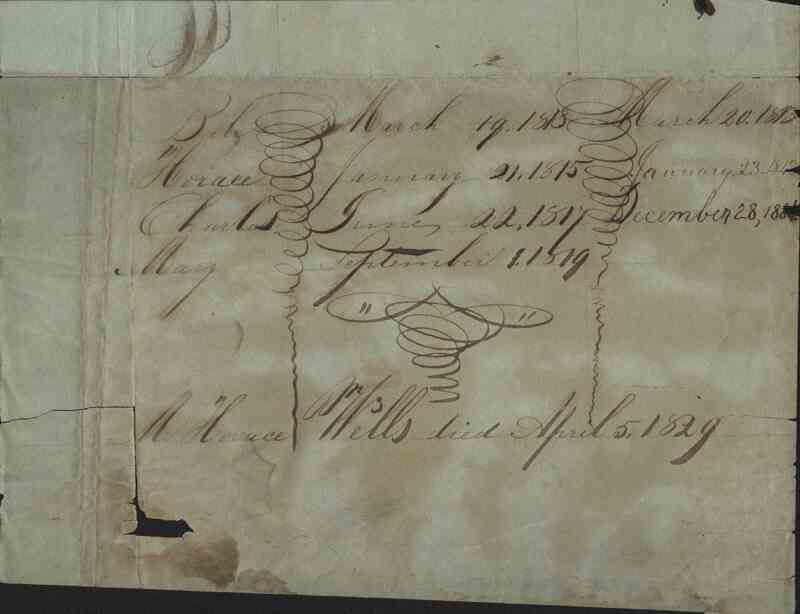 March 19, 1813 March 20, 1813
Horace January 21, 1815 January 23
Charles June 22, 1817 December 28, 188
Mary September 1, 1819
" "
Mr Horace Wells died April 5, 1829